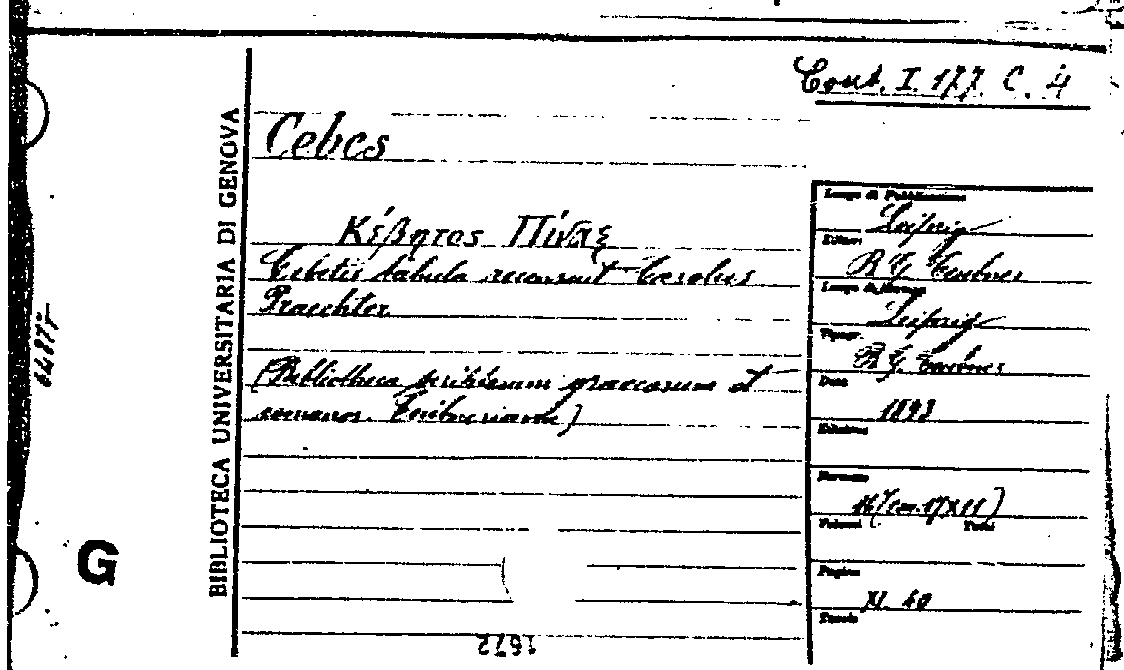 Cont. I. 177. C. 4
Cebes
Κέβητος Πίναξ
Cebetis tabula recensuit Carolus
Praechter
(Bibliotheca scribtorum graecorum et
romanor. Teubneriana)
Luogo di Pubblicazione
Leipzig
Editore
B. G. Teubner
Luogo di Stampa
Leipzig
Tipogr.
B. G. Teubner
Data
1893
Edizione
Formato
16° (cm. 17X11)
Volumi Tomi
Pagine
XI. 40
Tavole
BIBLIOTECA UNIVERSITARIA DI GENOVA
G
1672